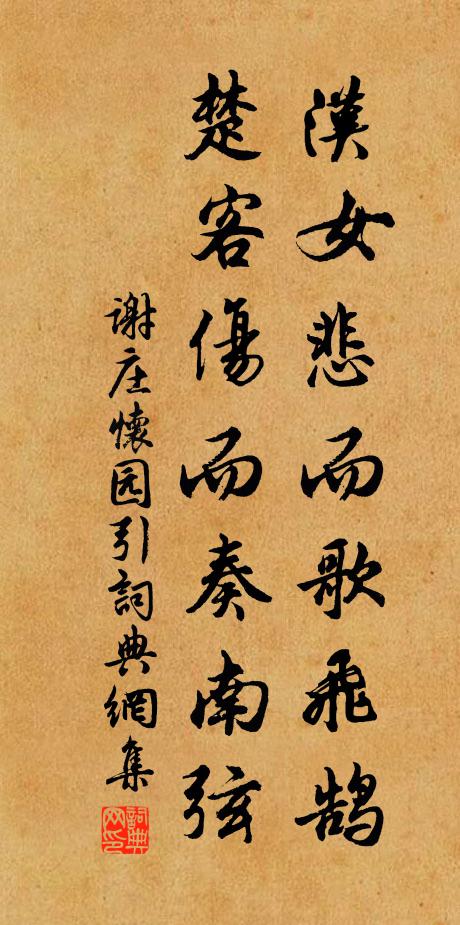 漢女悲而歌飛鵠
楚客傷而奏南弦
谢庄懷园引詞典網集
詞典網印